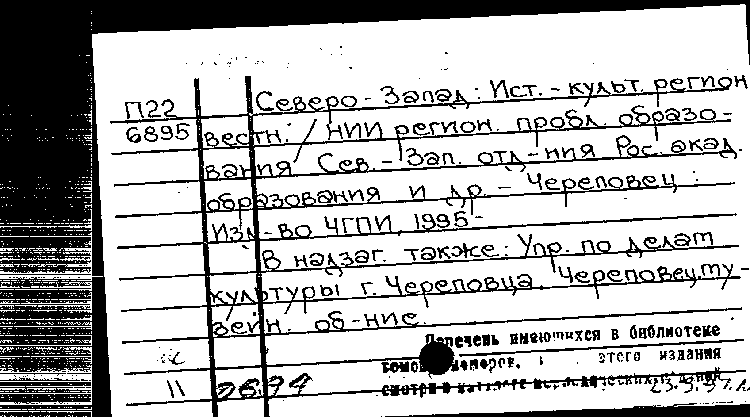 П22 Северо-Запад: Ист.-культ. регион
6895 вестн. / НИИ регион. пробл. образо-
вания Сев.-Зап. отд-ния Рос. акад.
образования и др. - Череповец:
Изд-во ЧГПИ, 1995-
В надзаг. также: Упр. по делам
культуры г. Череповца, Череповец. му-
зейн. об-ние.
Перечень имеющихся в библиотеке
этого издания
смотри в
11